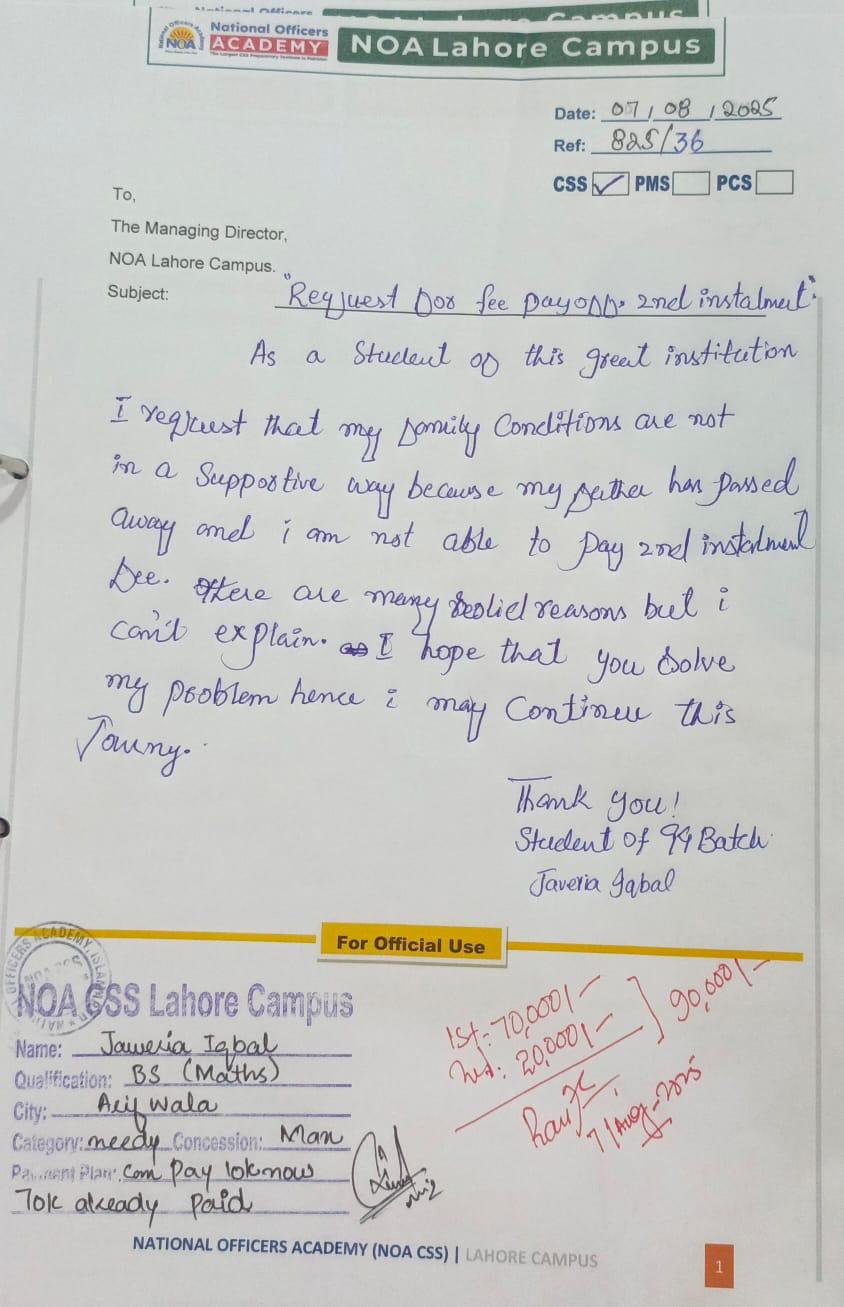 National Officers
ACADEMY
NOA
NOA Lahore Campus
Date: 07/08/2025
Ref: 825/36
CSS ✓ PMS PCS
To,
The Managing Director,
NOA Lahore Campus.
Subject: "Request for fee payoff. 2nd instalment."
As a Student of this great institution
I request that my family Conditions are not
in a Supportive way because my father has passed
away and i am not able to pay 2nd instalment
fee. there are many reasons but i
can't explain. I hope that you solve
my problem hence i may Continue this
Journy.
Thank you!
Student of 99 Batch
Javeria Iqbal
For Official Use
NOA CSS Lahore Campus
Name: Jaweria Iqbal
Qualification: BS (Maths)
City: Arif wala
Category: needy Concession: Max
Payment Plan: Can pay 10k now
70k already paid
1st: 70,000/-
2nd: 20,000/-
90,000/-
7/Aug-2025
NATIONAL OFFICERS ACADEMY (NOA CSS) | LAHORE CAMPUS
1